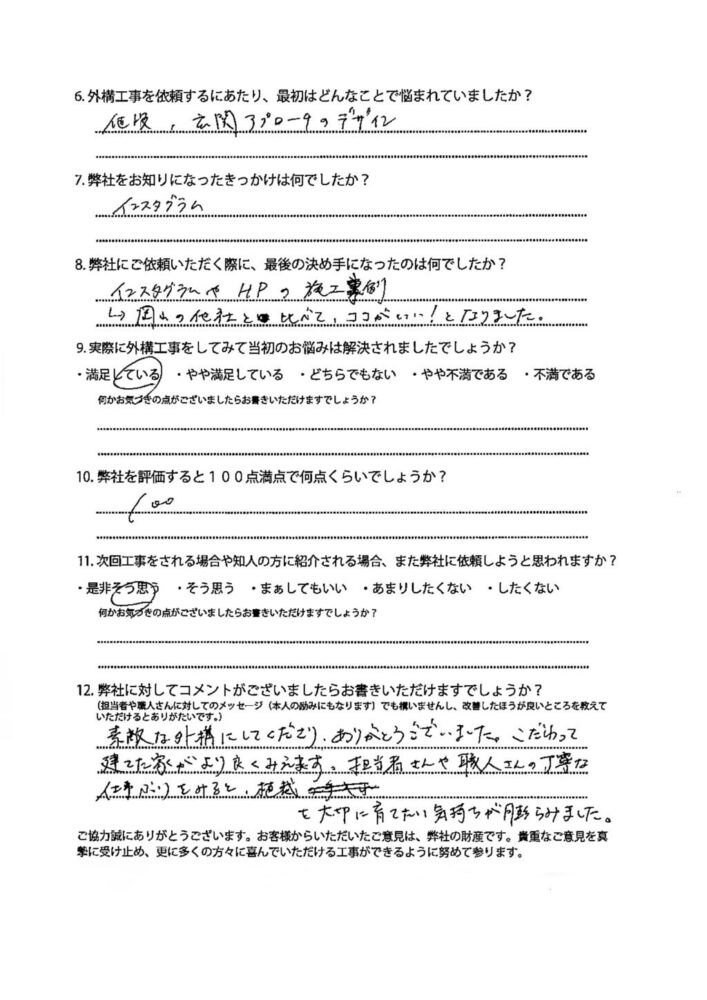 6. 外構工事を依頼するにあたり、最初はどんなことで悩まれていましたか？
値段、玄関アプローチのデザイン
7. 弊社をお知りになったきっかけは何でしたか？
インスタグラム
8. 弊社にご依頼いただく際に、最後の決め手になったのは何でしたか？
インスタグラムや HPの施工事例
↳ 岡山の他社と比べて、ココがいい！となりました。
9. 実際に外構工事をしてみて当初のお悩みは解決されましたでしょうか？
・満足している ・やや満足している ・どちらでもない ・やや不満である ・不満である
何かお気づきの点がございましたらお書きいただけますでしょうか？
10. 弊社を評価すると１００点満点で何点くらいでしょうか？
100
11. 次回工事をされる場合や知人の方に紹介される場合、また弊社に依頼しようと思われますか？
・是非そう思う ・そう思う ・まぁしてもいい ・あまりしたくない ・したくない
何かお気づきの点がございましたらお書きいただけますでしょうか？
12. 弊社に対してコメントがございましたらお書きいただけますでしょうか？
（担当者や職人さんに対してのメッセージ（本人の励みにもなります）でも構いませんし、改善したほうが良いところを教えて
いただけるとありがたいです。）
素敵な外構にしてくださり、ありがとうございました。こだわって
建てた家がより良くみえます。担当者さんや職人さんの丁寧な
仕事ぶりをみると、植栽
も大切に育てたい気持ちが膨らみました。
ご協力誠にありがとうございます。お客様からいただいたご意見は、弊社の財産です。貴重なご意見を真
摯に受け止め、更に多くの方々に喜んでいただける工事ができるように努めて参ります。